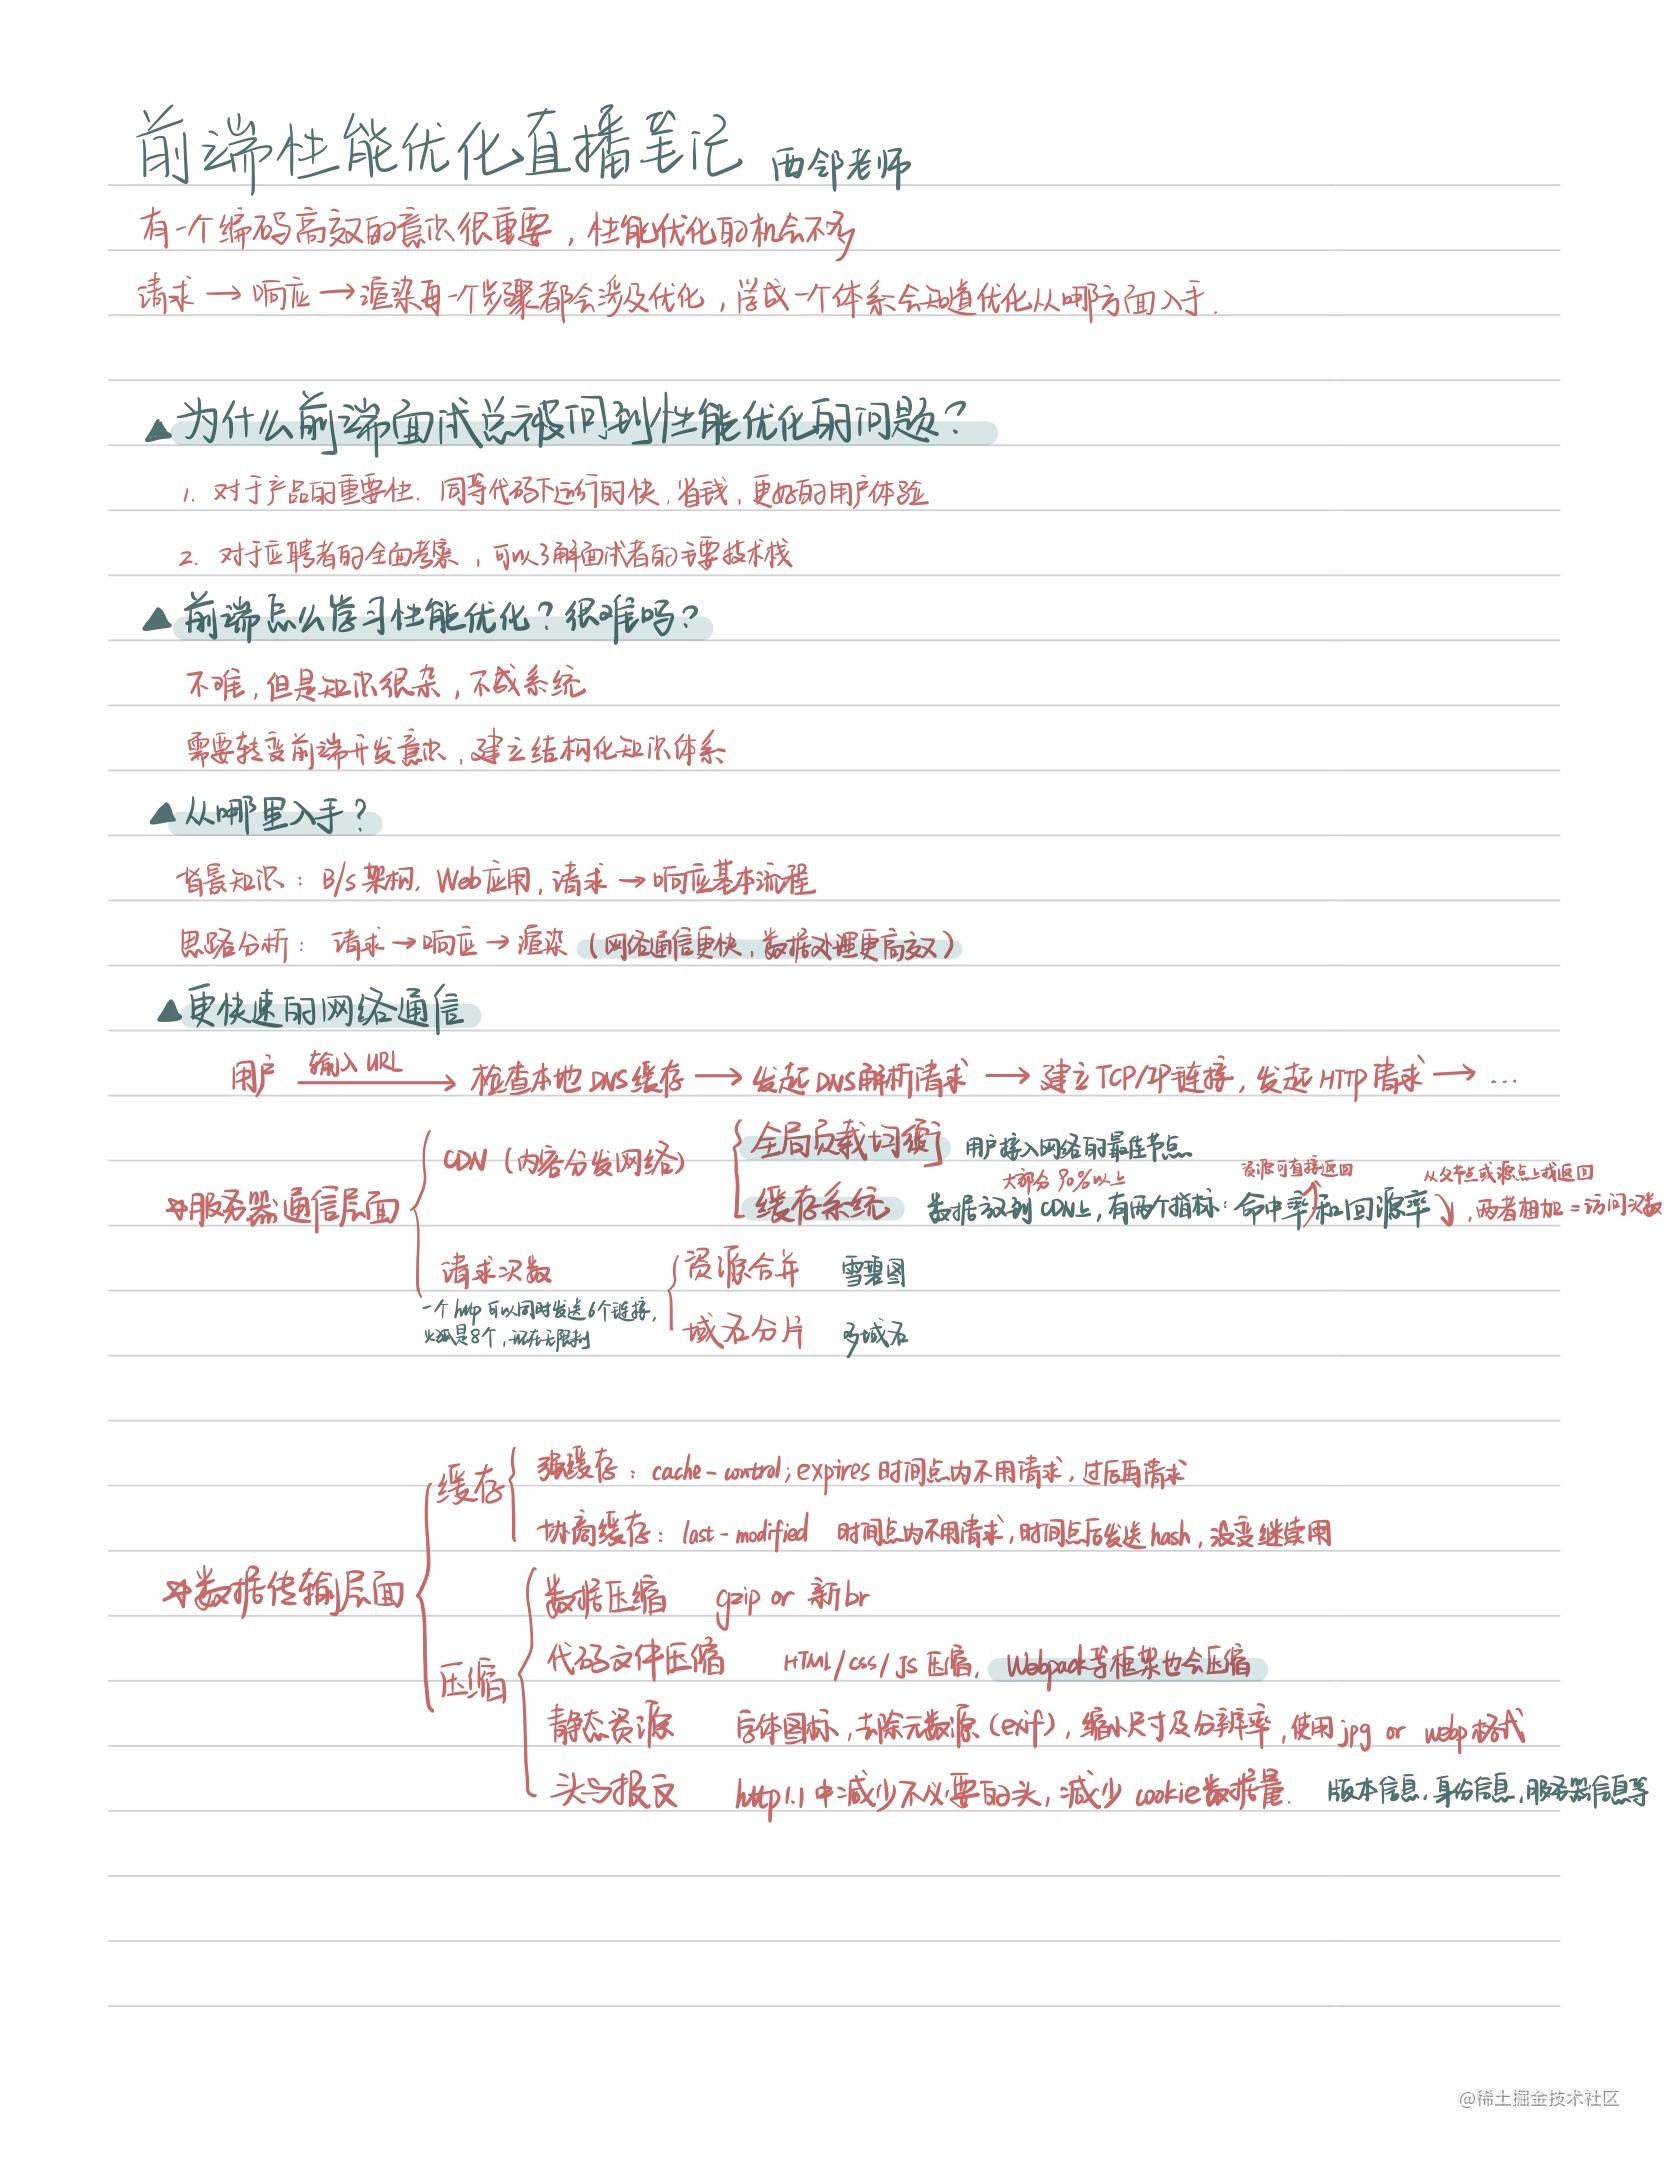 前端性能优化直播笔记 西邻老师
有一个编码高效的意识很重要，性能优化的机会不多
请求 → 响应 → 渲染每一个步骤都会涉及优化，学成一个体系会知道优化从哪方面入手.
▲为什么前端面试总被问到性能优化的问题？
1. 对于产品的重要性. 同等代码下运行的快，省钱，更好的用户体验
2. 对于应聘者的全面考察，可以了解面试者的主要技术栈
▲前端怎么学习性能优化？很难吗？
不难，但是知识很杂，不成系统
需要转变前端开发意识，建立结构化知识体系
▲从哪里入手？
背景知识：B/S 架构，Web应用，请求 → 响应基本流程
思路分析：请求 → 响应 → 渲染（网络通信更快，数据处理更高效）
▲更快速的网络通信
用户 输入URL → 检查本地 DNS 缓存 → 发起 DNS 解析请求 → 建立 TCP/IP 链接，发起 HTTP 请求 → ...
服务器通信层面
CDN（内容分发网络）
全局负载均衡 用户接入网络的最佳节点
大部分 90%以上
资源可直接返回
从父节点或源点上找返回
缓存系统 数据放到 CDN上，有两个指标：命中率和回源率，两者相加 = 访问次数
请求次数
一个 http 可以同时发送 6个链接，
火狐是8个，现在无限制
资源合并 雪碧图
域名分片 多域名
数据传输层面
缓存
强缓存：cache-control；expires 时间点内不用请求，过后再请求
协商缓存：last-modified 时间点内不用请求，时间点后发送 hash，没变继续用
压缩
数据压缩 gzip or 新br
代码文件压缩 HTML/css/JS 压缩，Webpack等框架也会压缩
静态资源 字体图标，去除元数源（exif），缩小尺寸及分辨率，使用 jpg or webp 格式
头与报文 http1.1 中减少不必要的头，减少 cookie 数据量. 版本信息，身份信息，服务器信息等
@稀土掘金技术社区